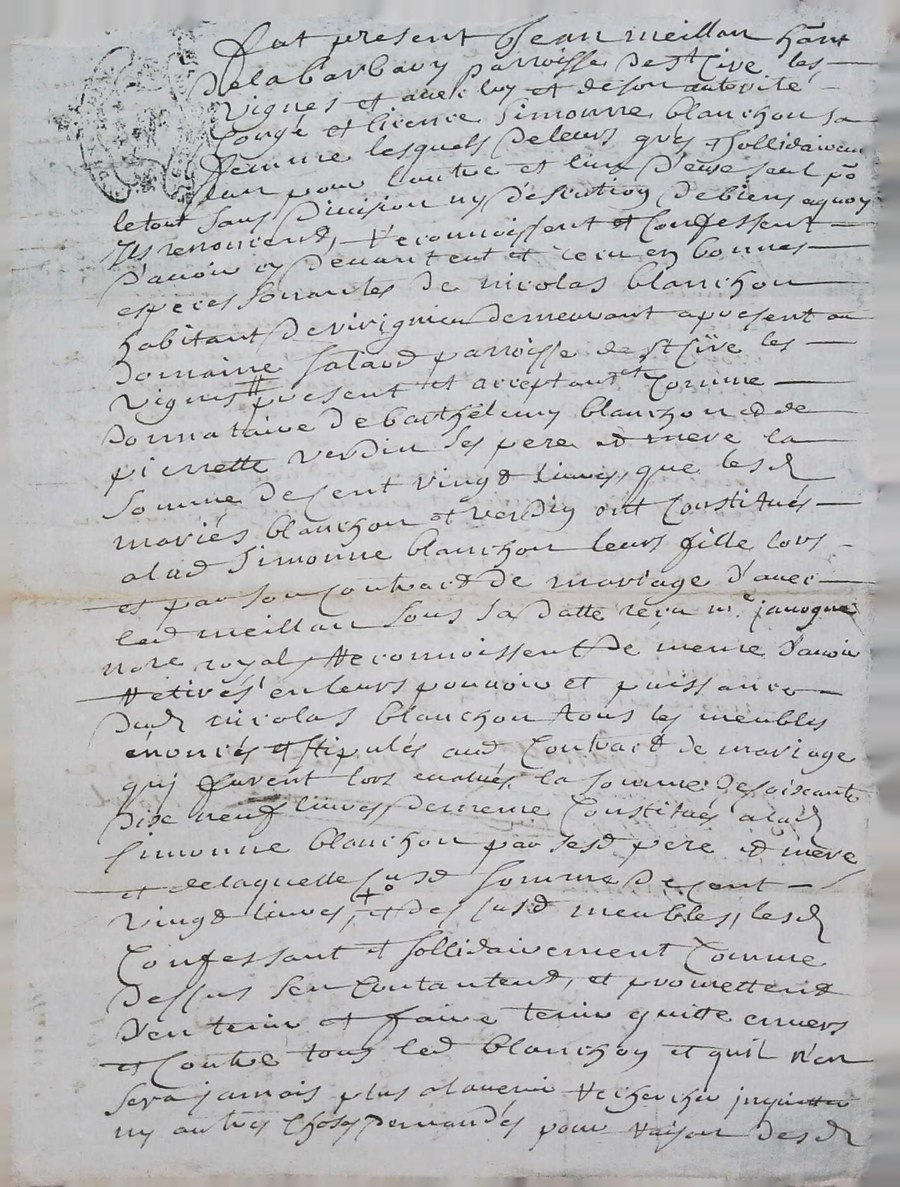 fut present Jean meillan hānt
dela barbary parroisse de st Cire les
vignes et avec luy et de son autorité
Congé et licence Simonne blanchon sa
femme lesquels de leurs grés et sollidairement
lun pour lautre et lung d'eux seul po
le tout sans division ny discution de biens aquoy
Ils renoncend, reconnoissent et Confessent
d'avoir cy devant eut et recu en bonnes
especes sonnantes de nicolas blanchon
habitant de virignieu demeurant apresent au
domaine salard parroisse de st Cire les
vignes present et acceptant et Comme
donnataire de barthelemy blanchon et de
pierrette verdin ses pere et mere la
somme de cent vingt livres, que lesd
mariés blanchon et verdin ont Constitués
alad Simonne blanchon leurs fille lors
et par son Contract de mariage d'avec
led meillan sous sa datte recu me janogne
nore royal, Reconnoissent de meme d'avoir
Retirés en leurs pouvoir et puissance
dud nicolas blanchon tous les meubles
enoncés et stipulés aud Contract de mariage
qui furent lors evalués la somme de soixante
dix neuf livres de meme Constitués alad
Simonne blanchon par sesd pere et mere
et delaquelle susd somme de cent
vingt livres, et des susd meubles, lesd
Confessant et sollidairement Comme
dessus sen Contantend, et promettend
d'en tenir et faire tenir quitte envers
et Contre tous led blanchon et quil n'en
sera jamais plus alavenir recherché inquietté
ny autres choses demandés pour raison desd